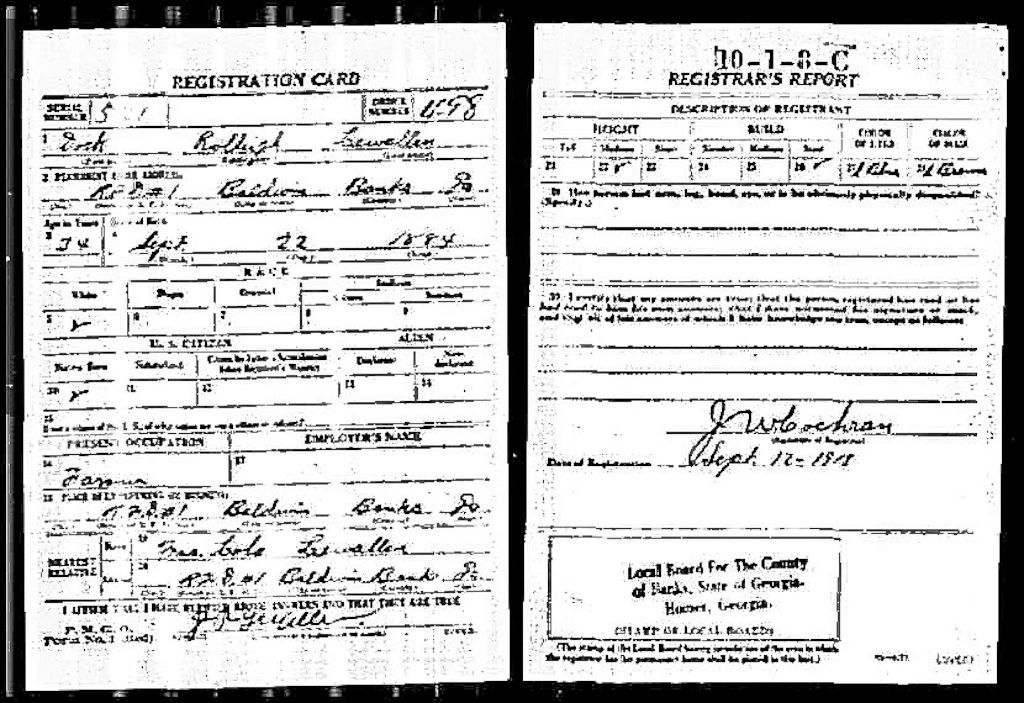 REGISTRATION CARD
SERIAL NUMBER 5 1 ORDER NUMBER 498
1 Dock Rolleigh Lewallen
2 PERMANENT HOME ADDRESS:
R.F.D #1 Baldwin Banks Ga
Age in Years Date of Birth
3 34 4 Sept. 22 1884
RACE
White Negro Oriental Indian
Citizen Noncitizen
5 ✓ 6 7 8 9
U. S. CITIZEN ALIEN
Native Born Naturalized Citizen by Father's Naturalization Before Registrant's Majority Declarant Non-declarant
10 ✓ 11 12 13 14
15
PRESENT OCCUPATION EMPLOYER'S NAME
16 Farmer 17
18 PLACE OF EMPLOYMENT OR BUSINESS:
R.F.D.#1 Baldwin Banks Ga
NEAREST RELATIVE Name 19 Lewallen
Address 20 R.F.D #1 Baldwin Banks Ga
I AFFIRM THAT I HAVE VERIFIED ABOVE ANSWERS AND THAT THEY ARE TRUE
P. M. G. O.
Form No. 1 (Red)
Lewallen
10-1-8-C
REGISTRAR'S REPORT
DESCRIPTION OF REGISTRANT
HEIGHT BUILD COLOR OF EYES COLOR OF HAIR
Tall Medium Short Slender Medium Stout
21 22 ✓ 23 24 25 26 ✓ 27 Blue 28 Brown
29 Has person lost arm, leg, hand, eye, or is he obviously physically disqualified?
(Specify.)
30 I certify that my answers are true; that the person registered has read or has
had read to him his own answers; that I have witnessed his signature or mark,
and that all of his answers of which I have knowledge are true, except as follows:
J W Cochran
(Signature of Registrar)
Date of Registration Sept. 12-1918
Local Board For The County
of Banks, State of Georgia.
Homer, Georgia.
(STAMP OF LOCAL BOARD)
(The stamp of the Local Board having jurisdiction of the area in which
the registrant has his permanent home shall be placed in this box.)